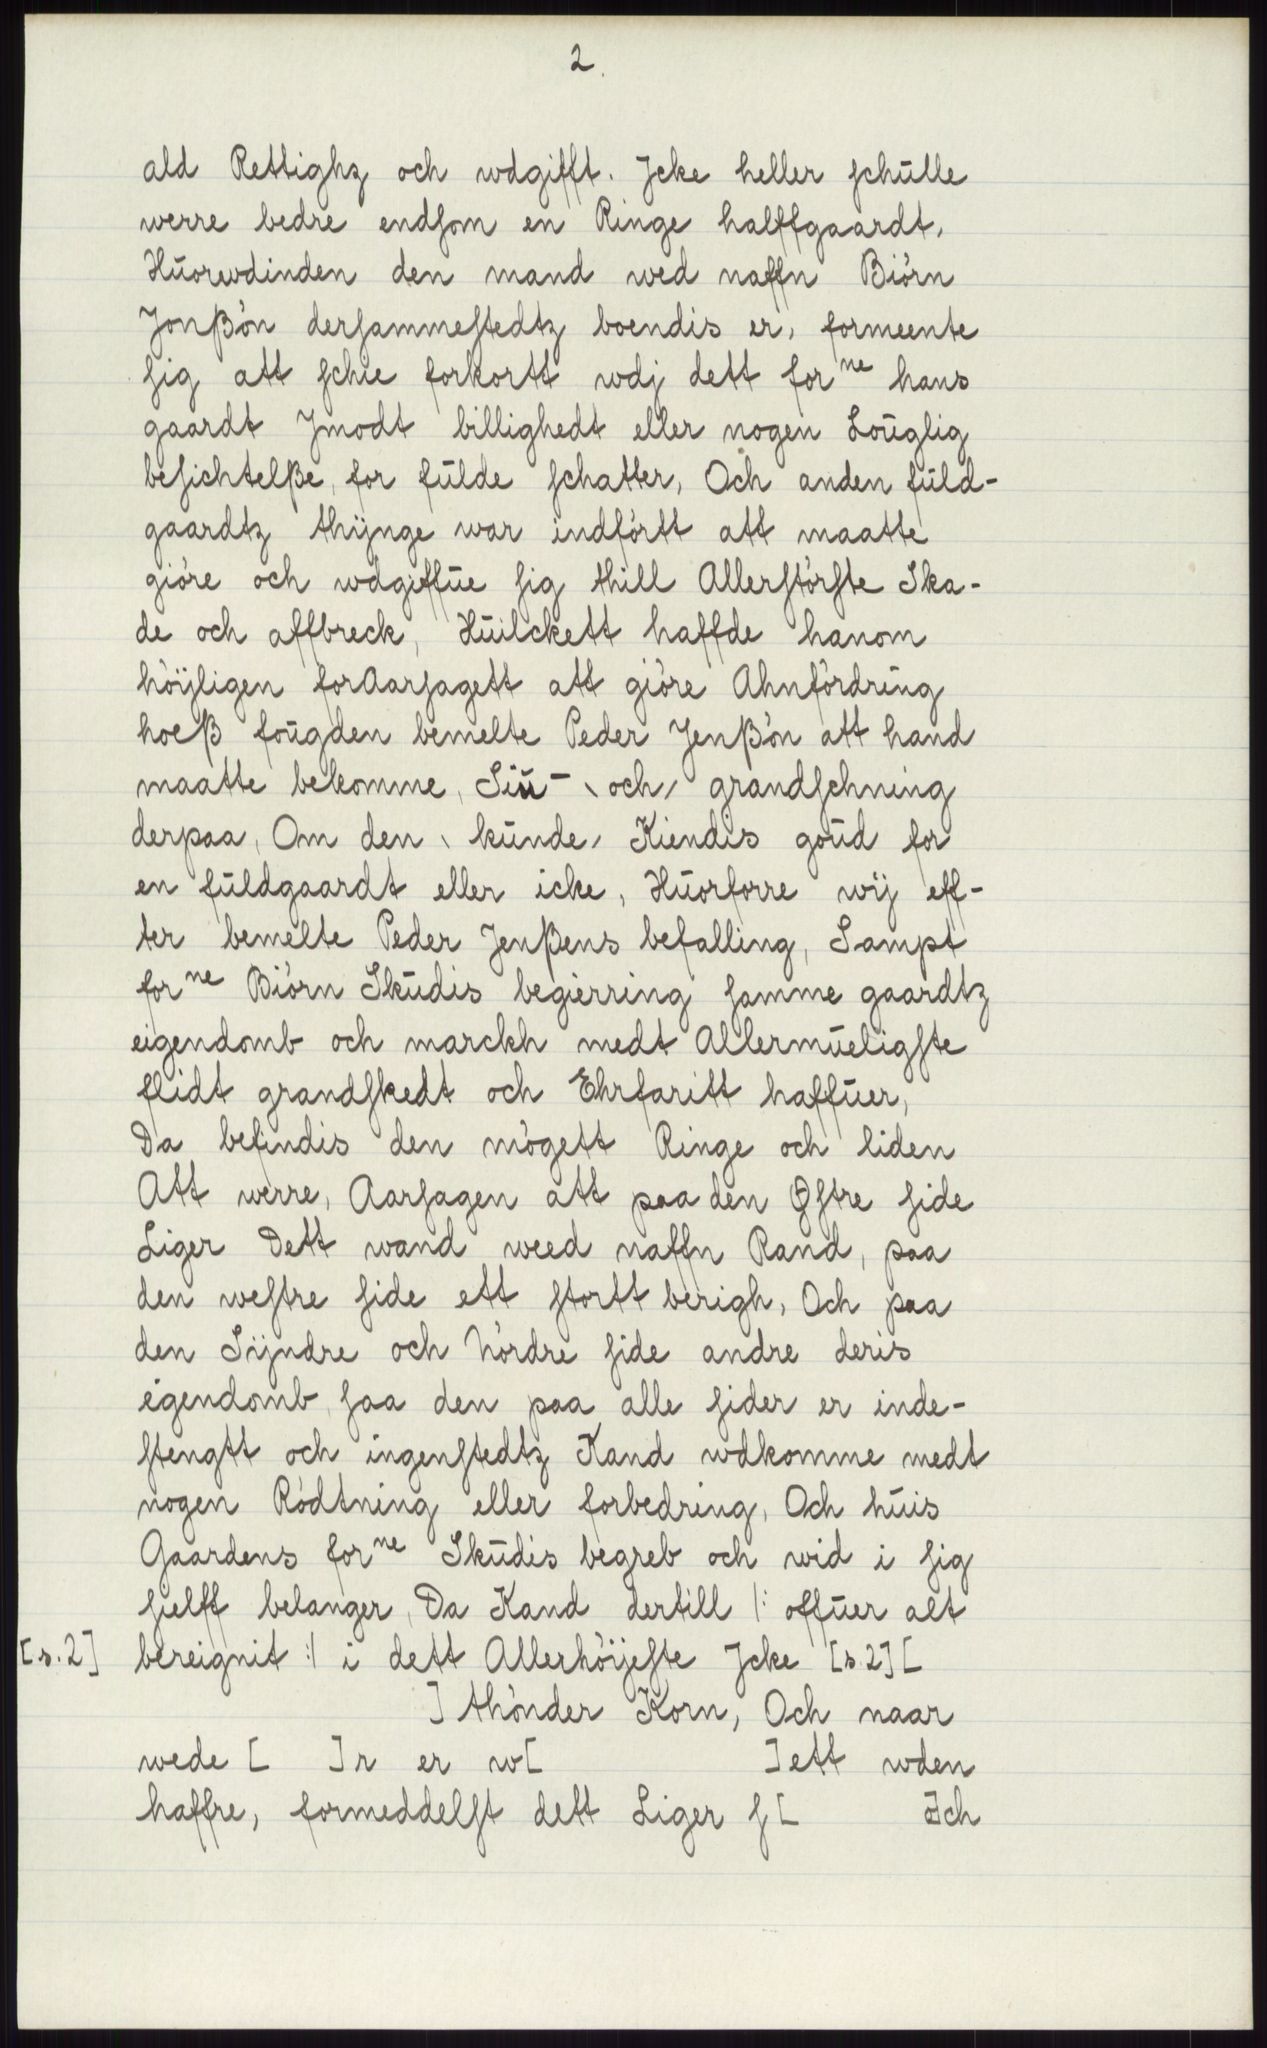 2.
ald Rettighz och wdgifft. Jcke heller schulle
werre bedre endsom en Ringe halffgaardt.
Huorwdinden den mand wed naffn Biörn
Jonßön dersammestedtz boendis er, formeente
sig att schie forkortt wdj dett forne hans
gaardt Jmodt billighedt eller nogen Louglig
besichtelße, for fulde schatter, Och anden fuld-
gaardtz thijnge war indförtt att maatte
giöre och wdgiffue sig thill Allerstörste Ska-
de och affbreck, Huilckett haffde hanom
höijligen forAarsagett att giöre Ahnfordring
hoeß fougden bemelte Peder Jenßön att hand
maatte bekomme, Siu- \ och / grandschning
derpaa, Om den \ kunde / Kiendis goud for
en fuldgaardt eller icke, Huorforre wij eff-
ter bemelte Peder Jenßens befalling, Sampt
forne Biörn Skudis begierring samme gaardtz
eigendomb och marckh medt Allermueligste
flidt grandskedt och Ehrfaritt haffuer,
Da befindis den mögett Ringe och liden
Att werre, Aarsagen att paa den Østre side
Liger Dett wand weed naffn Rand, paa
den westre side ett stortt berigh, Och paa
den Sijndre och Nördre side andre deris
eigendomb, saa den paa alle sider er inde-
stengtt och ingenstedtz Kand wdkomme medt
nogen Rödtning eller forbedring, Och huis
Gaardens forne Skudis begreb och wid i sig
sielff belanger, Da Kand dertill /: offuer alt
[s.2] bereignit :/ i dett Allerhöijeste Jcke [s.2] [
] thönder Korn, Och naar
wede [ ]r er w[ ]ett wden
haffre, formeddelst dett Liger s[ ]ch